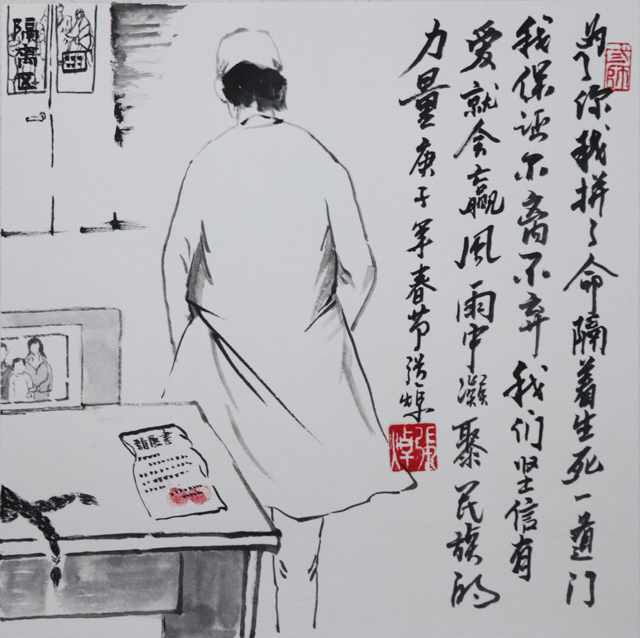 为了你我拼了命隔着生死一道门
我保证不离不弃我们坚信有
爱就会赢风雨中凝聚民族的
力量庚子年春节张焯
张焯
隔离区